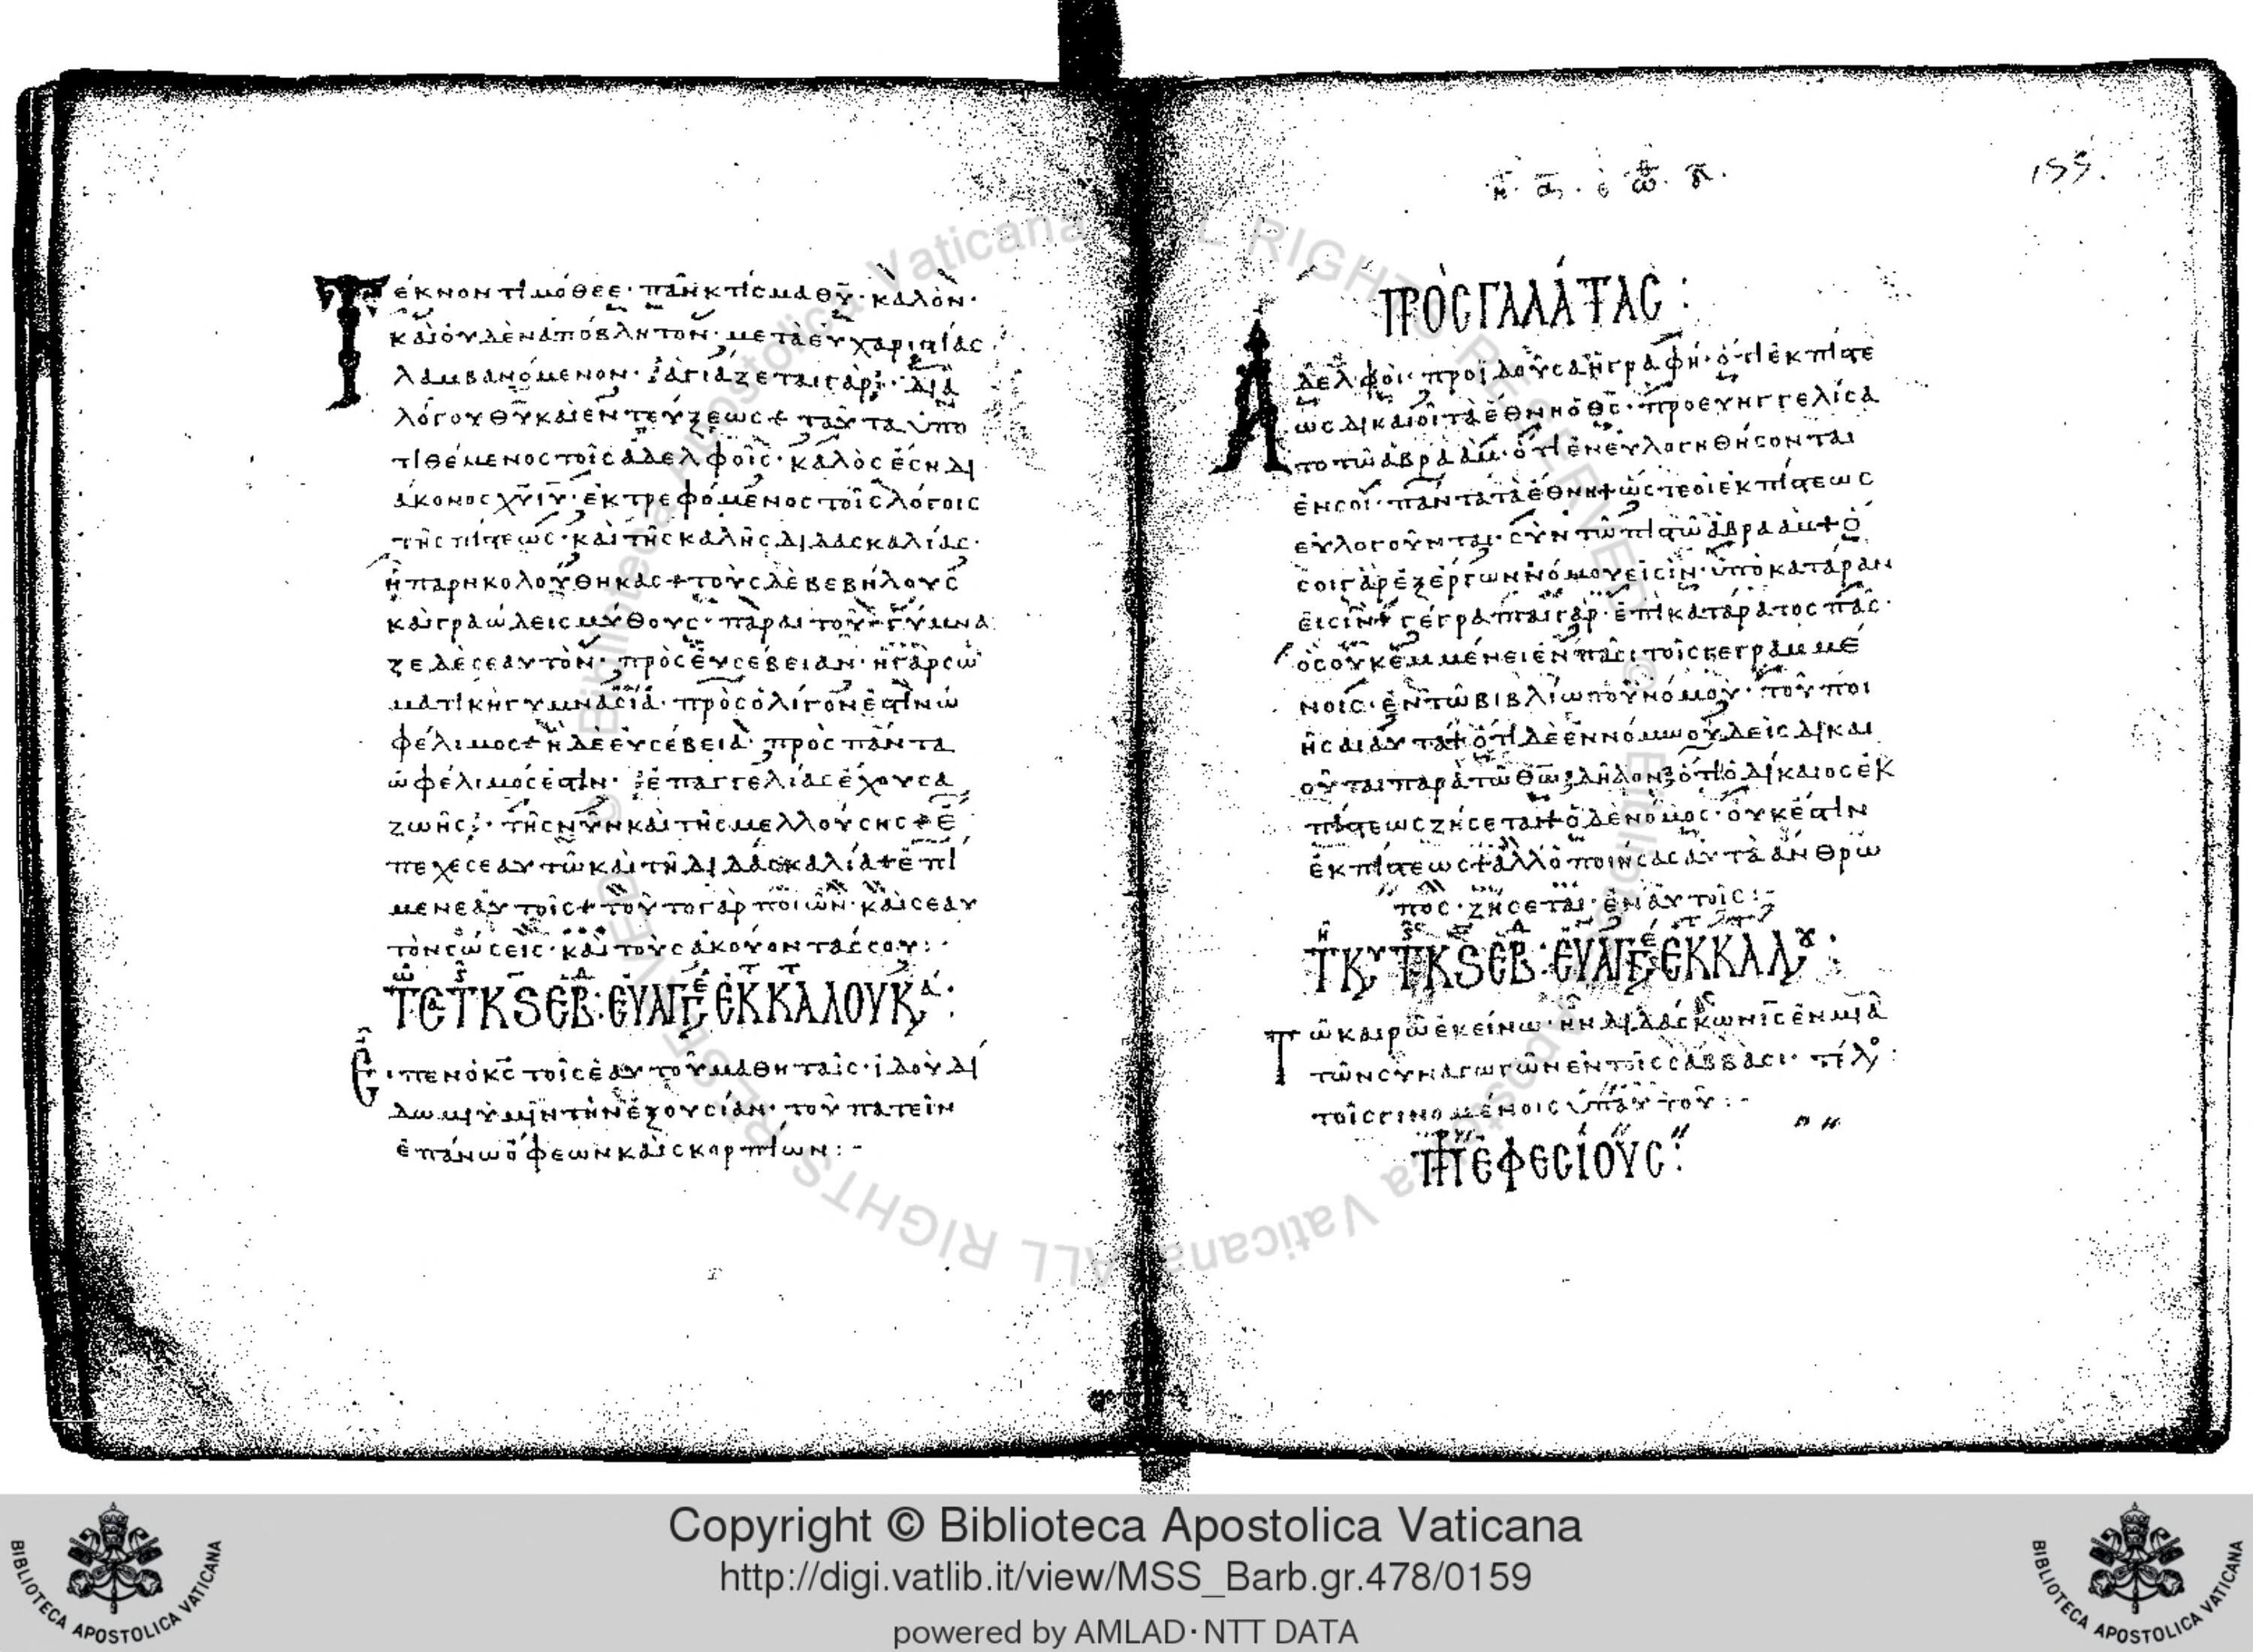 Τέκνον τιμόθεε· πᾶν κτίσμα θ̅υ̅· καλὸν·
καὶ οὐδὲν ἀπόβλητον· μετὰ εὐχαριστίας
λαμβανόμενον· ἁγιάζεται γὰρ· διὰ
λόγου θ̅υ̅ καὶ ἐντεύξεως + ταῦτα ὑπο
τιθέμενος τοῖς ἀδελφοῖς· καλὸς ἔση δι
άκονος χ̅υ̅ ι̅υ̅· ἐκτρεφόμενος τοῖς λόγοις
τῆς πίστεως· καὶ τῆς καλῆς διδασκαλίας·
ἧ παρηκολούθηκας + τοὺς δὲ βεβήλους
καὶ γραώδεις μύθους· παραιτοῦ + γύμνα
ζε δὲ σεαυτὸν· πρὸς εὐσέβειαν· ἡ γὰρ σω
ματικὴ γυμνασία· πρὸς ὀλίγον ἐστὶν ὠ
φέλιμος + ἡ δὲ εὐσέβεια· πρὸς πάντα
ὠφέλιμός ἐστιν· ἐπαγγελίας ἔχουσα
ζωῆς· τῆς νῦν καὶ τῆς μελλούσης + ἔ
πεχε σεαυτῶ καὶ τῆ διδασκαλία + ἐπί
μενε αὐτοῖς + τοῦτο γὰρ ποιῶν· καὶ σεαυ
τὸν σώσεις· καὶ τοὺς ἀκούοντάς σου:·
εὐαγγέ ἐκ κα λουκα:
Εἶπεν ὁ κ̅ς̅ τοῖς ἑαυτοῦ μαθηταῖς· ἰδοὺ δί
δωμι ὑμῖν τὴν ἐξουσίαν· τοῦ πατεῖν
ἐπάνω ὄφεων καὶ σκορπίων:-
155.
ΠΡῸΣ ΓΑΛΆΤΑΣ:
Ἀδελφοὶ· προϊδοῦσα ἡ γραφὴ· ὅτι ἐκ πίστε
ως δικαιοῖ τὰ ἔθνη ὁ θ̅ς̅· προευηγγελίσα
το τῶ ἀβραάμ· ὅτι ἐνευλογηθήσονται
ἐν σοὶ· πάντα τὰ ἔθνη + ὥστε οἱ ἐκ πίστεως
εὐλογοῦνται· σὺν τῶ πιστῶ ἀβραὰμ + ὅ
σοι γὰρ ἐξ ἔργων νόμου εἰσὶν· ὑπὸ κατάραν
εἰσὶν + γέγραπται γάρ· ἐπικατάρατος πᾶς·
ὃς οὐκ ἐμμένει ἐν πᾶσι τοῖς γεγραμμέ
νοις· ἐν τῶ βιβλίω τοῦ νόμου· τοῦ ποι
ῆσαι αὐτὰ + ὅτι δὲ ἐν νόμω οὐδεὶς δικαι
οῦται παρὰ τῶ θ̅ω̅ δῆλον ὅτι ὁ δίκαιος ἐκ
πίστεως ζήσεται + ὁ δὲ νόμος· οὐκ ἔστιν
ἐκ πίστεως + ἀλλ' ὁ ποιήσας αὐτὰ ἄνθρω
πος· ζήσεται· ἐν αὐτοῖς:-
εὐαγγέ ἐκ κα λου:
Τῶ καιρῶ ἐκείνω· ἦν διδάσκων ὁ ι̅ς̅ ἐν μιᾶ
τῶν συναγωγῶν ἐν τοῖς σάββασι· τέλ:
τοῖς γινομένοις ὑπ' αὐτοῦ:-
ἐφεσίους:
Copyright © Biblioteca Apostolica Vaticana
http://digi.vatlib.it/view/MSS_Barb.gr.478/0159
powered by AMLAD·NTT DATA
BIBLIOTECA APOSTOLICA VATICANA
BIBLIOTECA APOSTOLICA VATICANA